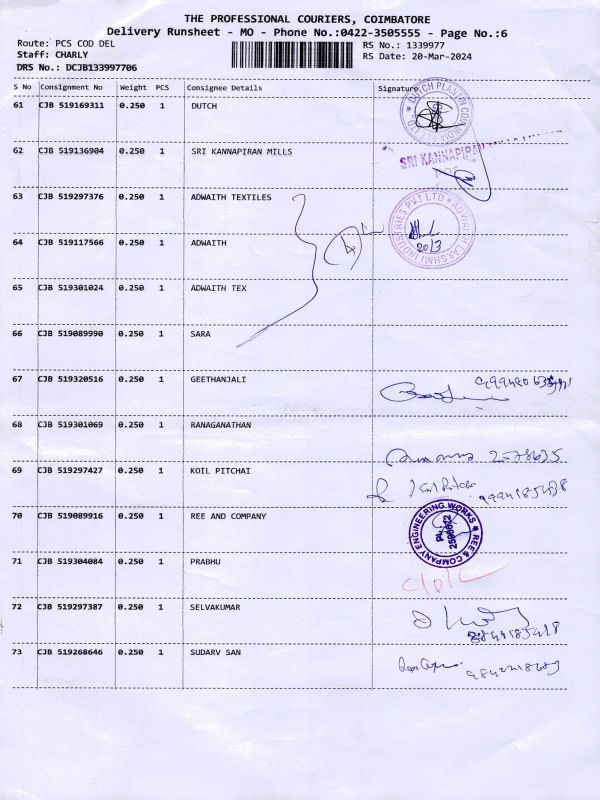 THE PROFESSIONAL COURIERS, COIMBATORE
Delivery Runsheet - MO - Phone No.:0422-3505555 - Page No.:6
Route: PCS COD DEL RS No.: 1339977
Staff: CHARLY RS Date: 20-Mar-2024
DRS No.: DCJB133997706
S No Consignment No Weight PCS Consignee Details Signature
61 CJB 519169311 0.250 1 DUTCH
62 CJB 519136904 0.250 1 SRI KANNAPIRAN MILLS
SRI KANNAPIRAN
63 CJB 519297376 0.250 1 ADWAITH TEXTILES
ADWAITH LAKSHMI INDUSTRIES PVT LTD
64 CJB 519117566 0.250 1 ADWAITH
20/3
65 CJB 519301024 0.250 1 ADWAITH TEX
66 CJB 519089990 0.250 1 SARA
67 CJB 519320516 0.250 1 GEETHANJALI
68 CJB 519301069 0.250 1 RANAGANATHAN
2578635
69 CJB 519297427 0.250 1 KOIL PITCHAI
70 CJB 519089916 0.250 1 REE AND COMPANY
REE & COMPANY ENGINEERING WORKS
71 CJB 519304084 0.250 1 PRABHU
72 CJB 519297387 0.250 1 SELVAKUMAR
73 CJB 519268646 0.250 1 SUDARV SAN